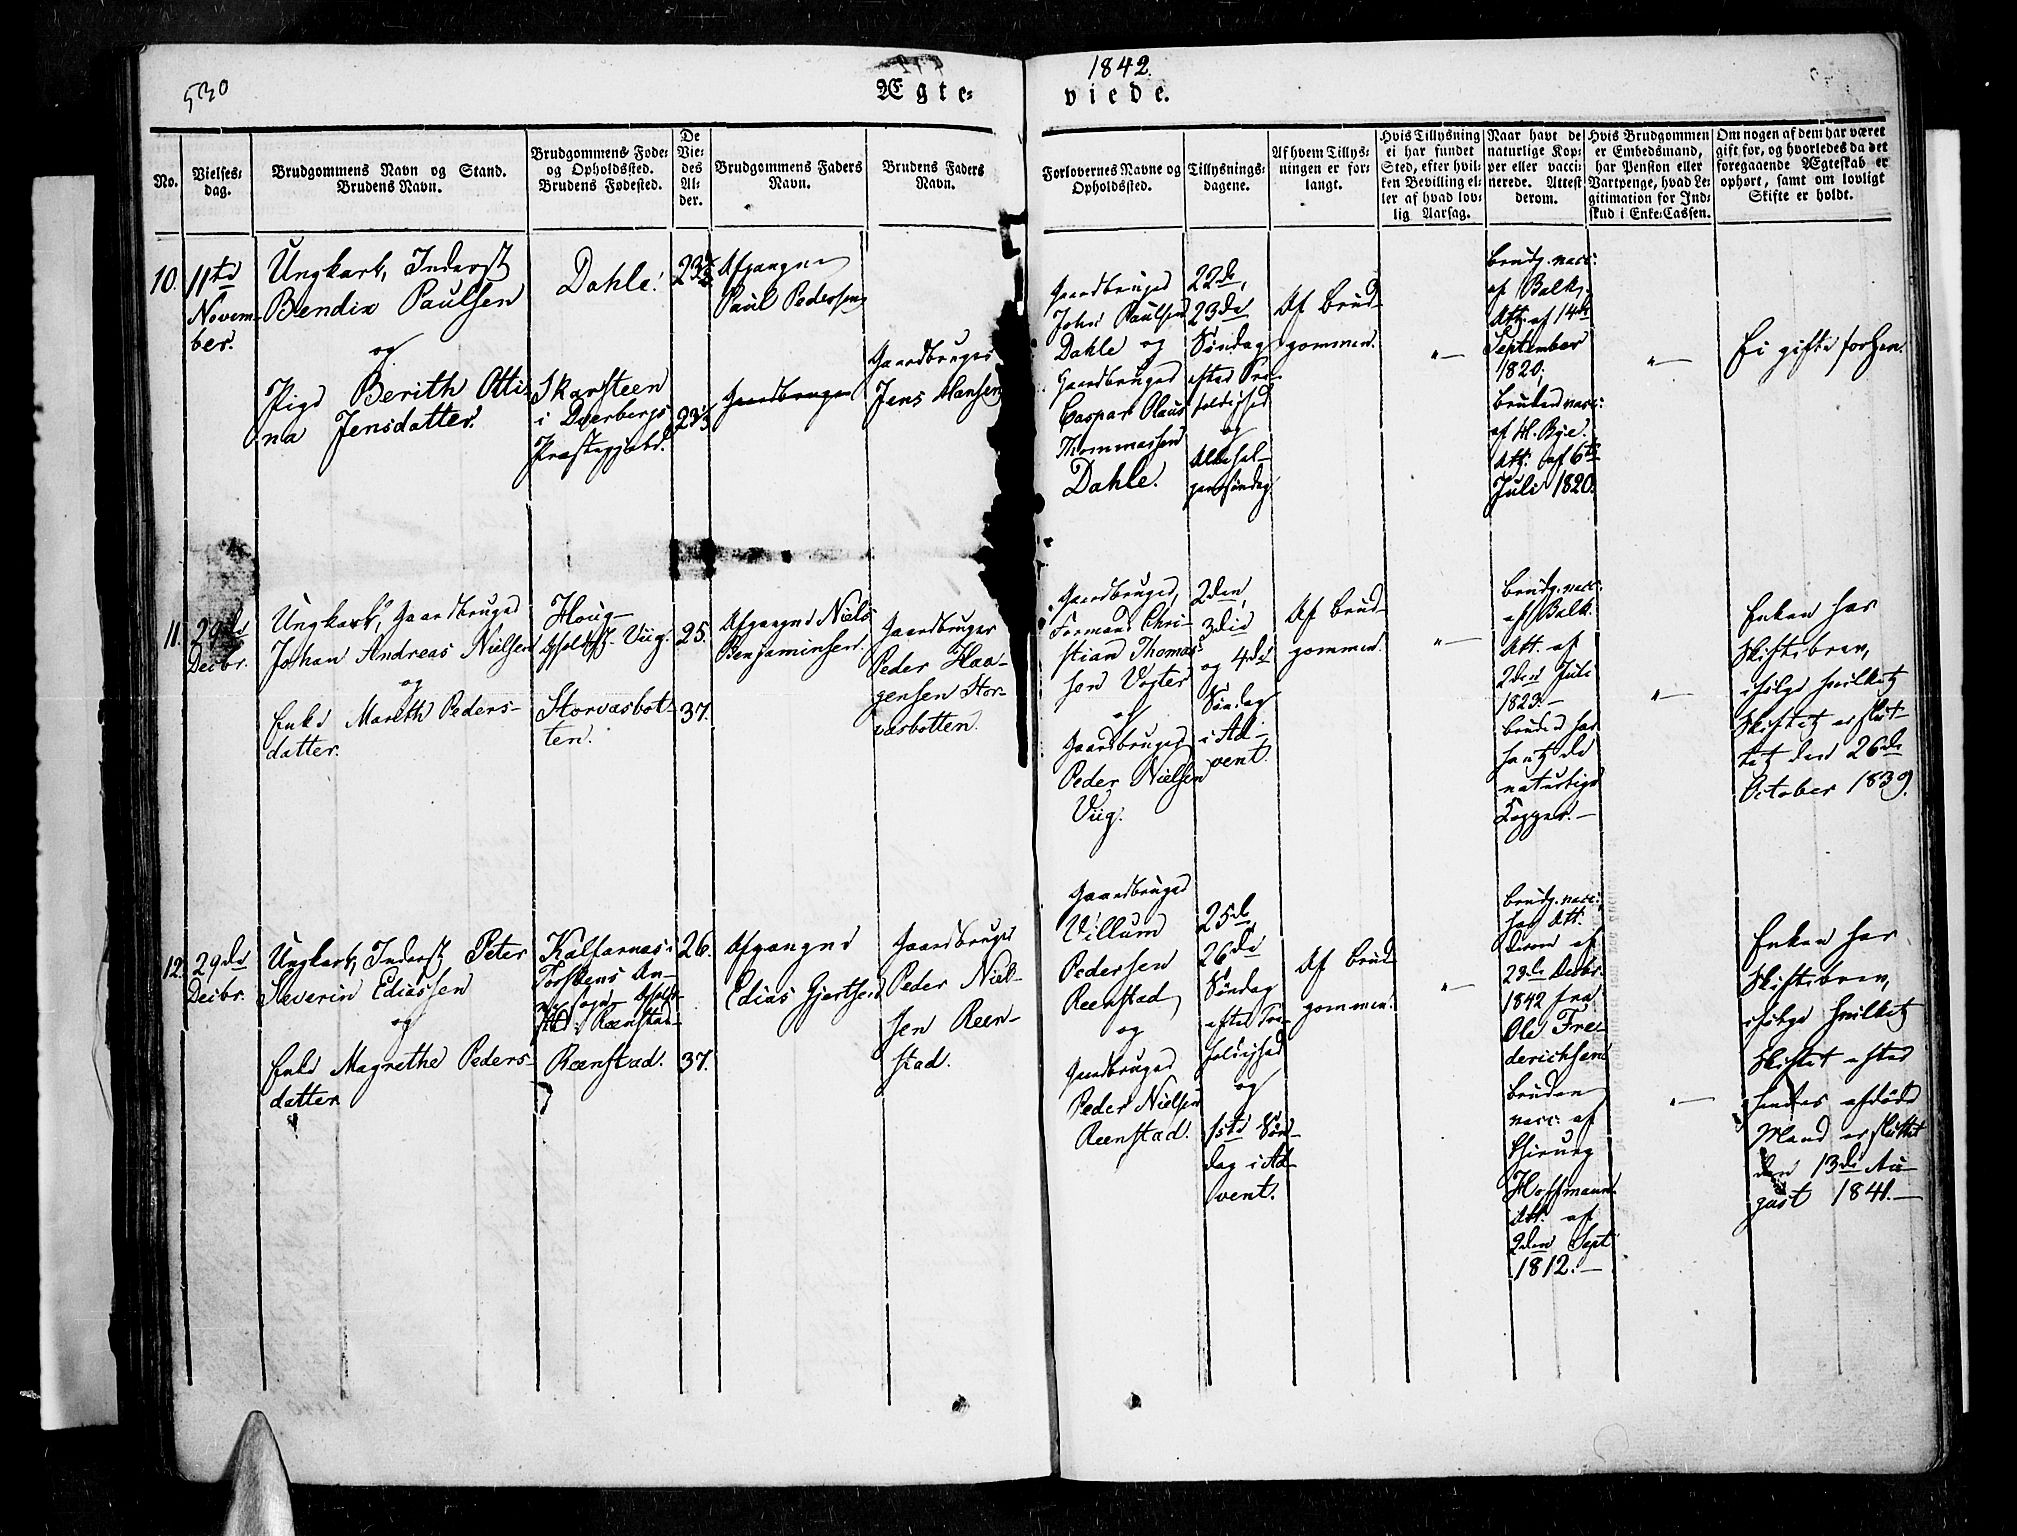 530
1842.
Ægte-
viede.
No.
Vielses-
dag.
Brudgommens Navn og Stand.
Brudens Navn.
Brudgommens Føde-
og Opholdssted.
Brudens Fødested.
De
Vie-
des
Al-
der.
Brudgommens Faders
Navn.
Brudens Faders
Navn.
Forlovernes Navne og
Opholdssted.
Tillysnings-
dagene.
Af hvem Tillys-
ningen er for-
langt.
Hvis Tillysning
ei har fundet
Sted, efter hvil-
ken Bevilling el-
ler af hvad lov-
lig Aarsag.
Naar havt de
naturlige Kop-
per eller vacci-
nerede. Attest
derom.
Hvis Brudgommen
er Embedsmand,
har Pension eller
Vartpenge, hvad Le-
gitimation for Ind-
skud i Enke-Cassen.
Om nogen af dem har været
gift før, og hvorledes da det
foregaaende Ægteskab er
ophørt, samt om lovligt
Skifte er holdt.
10.
11te
Novem-
ber.
Ungkarl, Inderst
Bendix Paulsen
og
Pige Berith Otti-
na Jensdatter.
Dahle.
Skarsteen
i Dverbergs
Præstegjæld.
Afgangne
Paul Pedersen
Gaardbruger
Gaardbruger
Jens Hansen
Gaardbruger
John Paulsen
Dahle og
Gaardbruger
Caspar Olaus
Thommassen
Dahle.
22de,
23de
Søndag
efter Tre-
foldighed
og
Allehel-
gensøndag
Af Brud-
gommen.
"
Brudg. vacc:
af Balk,
Att: af 14de
September
1820;
Bruden vacc:
af H. Bye.
Att: af 6te
Juli 1820.
"
Ei gifte forhen.
11.
29de
Decbr.
Ungkarl, Gaardbruger
Johan Andreas Nielsen
og
Enke Mareth Peders-
datter.
Houg-
Opholdst. Viig.
Storvasbot-
ten.
25.
37.
Afgangne Niels
Benjaminsen.
Gaardbruger
Peder Haa-
gensen Stor-
vasbotten.
Gaardbruger,
Formand Chri-
stian Thomas-
sen Vogter
og
Gaardbruger
Peder Nielsen
Viig.
2den,
3die
og 4de
Søndag
i Ad-
vent.
Af Brud-
gommen.
"
Brudg. vacc:
af Balk.
Att. af
2den Juli
1823.-
Bruden har
havt de
naturlige
Kopper.-
"
Enken har
Skiftebrev,
ifølge hvilket
Skiftet er slut-
tet den 26de
October 1839.
12.
29de
Decbr.
Ungkarl, Inderst Peter
Severin Ediassen
og
Enke Magrethe Peders-
datter
Kalfarnæs i
Torskens An-
nex sogn Opholds-
sted: Reenstad-
Reenstad.
26.
37.
Afgangne
Edias Gjertsen
Gaardbruger
Peder Niel-
sen Reen-
stad.
Gaardbruger
Villum
Pedersen
Reenstad
og
Gaardbruger
Peder Nielsen
Reenstad.
25de
26de
Søndag
efter Tre-
foldighed
og
1ste Søn-
dag i Ad-
vent.
Af Brud-
gommen.
"
Brudg. vacc:
har Att.
derom af
29de Decbr.
1842 fra
Ole Fre-
derichsen
Bruden
vacc: af
Chirurg
Hoffmann.
Att. af
2den Sept
1812.-
"
Enken har
Skiftebrev,
ifølge hvilket
Skiftet efter
hendes afdøde
Mand er sluttet
den 13de Au-
gust 1841.-